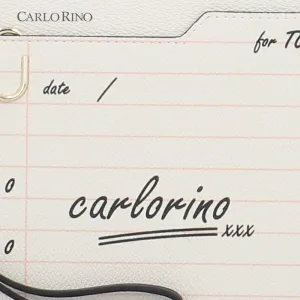 CARLO RINO
for TO
date /
carlorino
xxx
o
o